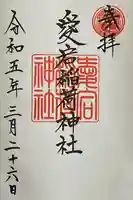 奉拝
愛宕稲荷神社
愛宕
神社
令和五年三月二十六日